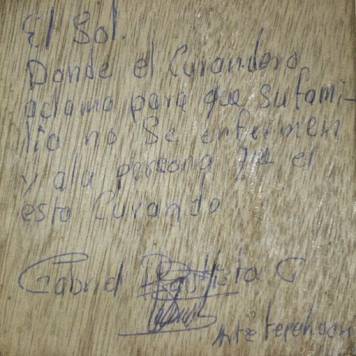 El Sol.
Donde el Curandero
aclama para que su fami-
lia no se enfermen
y a la persona que el
esta Curando
Gabriel Bautista C